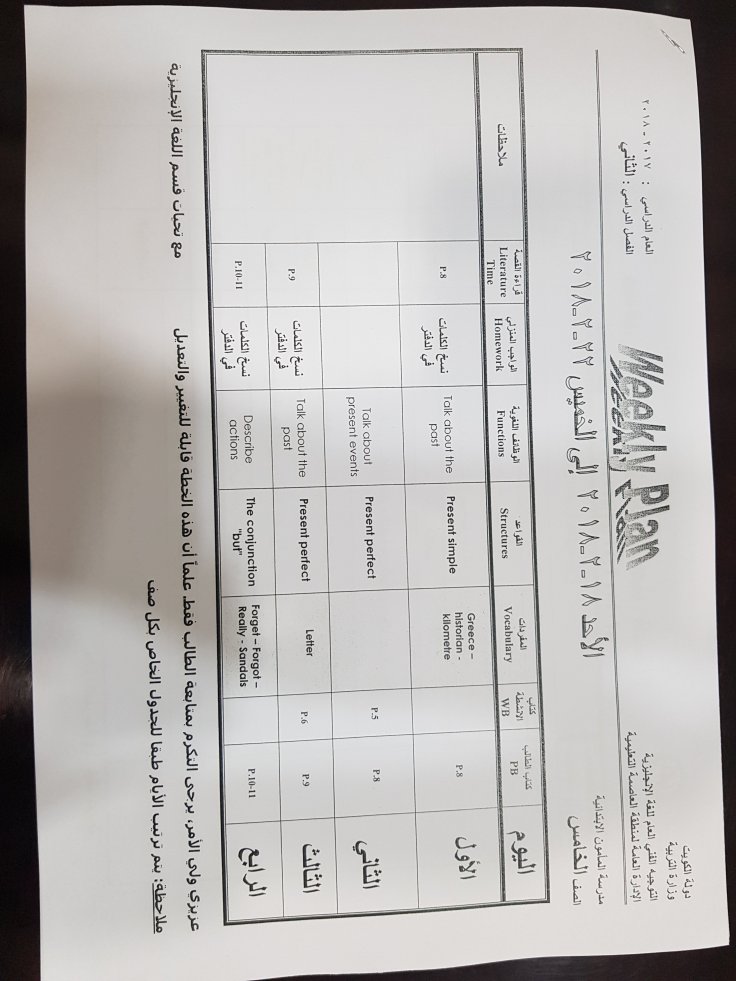 دولة الكويت
وزارة التربية
التوجيه الفني العام للغة الإنجليزية
الإدارة العامة لمنطقة العاصمة التعليمية
مدرسة المأمون الابتدائية
الصف الخامس
Weekly Plan
العام الدراسي : ٢٠١٧ - ٢٠١٨
الفصل الدراسي : الثاني
الأحد ١٨-٢-٢٠١٨ إلى الخميس ٢٢-٢-٢٠١٨
اليوم
كتاب الطالب
PB
كتاب الأنشطة
WB
المفردات
Vocabulary
القواعد
Structures
الوظائف اللغوية
Functions
الواجب المنزلي
Homework
قراءة القصة
Literature
Time
ملاحظات
الأول
P.8
Greece –
historian -
kilometre
Present simple
Talk about the
past
نسخ الكلمات
في الدفتر
P.8
الثاني
P.8
P.5
Present perfect
Talk about
present events
الثالث
P.9
P.6
Letter
Present perfect
Talk about the
past
نسخ الكلمات
في الدفتر
P.9
الرابع
P.10-11
Forget – Forgot –
Really - Sandals
The conjunction
"but"
Describe
actions
نسخ الكلمات
في الدفتر
P.10-11
عزيزي ولي الأمر، يرجى التكرم بمتابعة الطالب فقط. علماً أن هذه الخطة قابلة للتغيير والتعديل
ملاحظة: يتم ترتيب الأيام طبقا للجدول الخاص بكل صف
مع تحيات قسم اللغة الإنجليزية